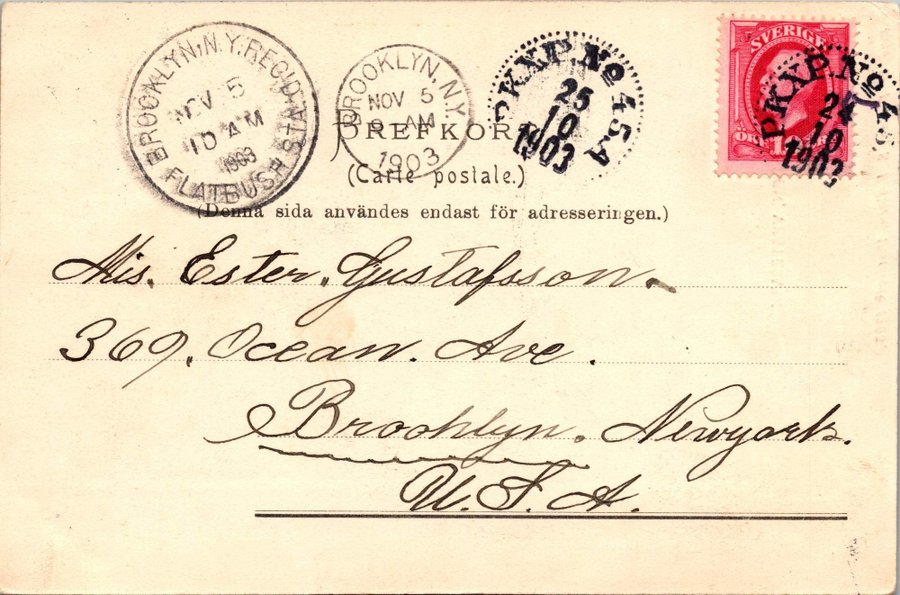 BROOKLYN, N.Y. REG'D
NOV 5
10 AM
1903
FLATBUSH STA.
BROOKLYN, N.Y.
NOV 5
AM
1903
PKXP. No 45 A
25
10
1903
SVERIGE
ÖRE 10
PKXP. No 45
24
10
1903
BREFKORT
(Carte postale.)
(Denna sida användes endast för adresseringen.)
Mis. Ester. Gustafsson.
369. Ocean. Ave.
Brooklyn. Newyork.
U.S.A.